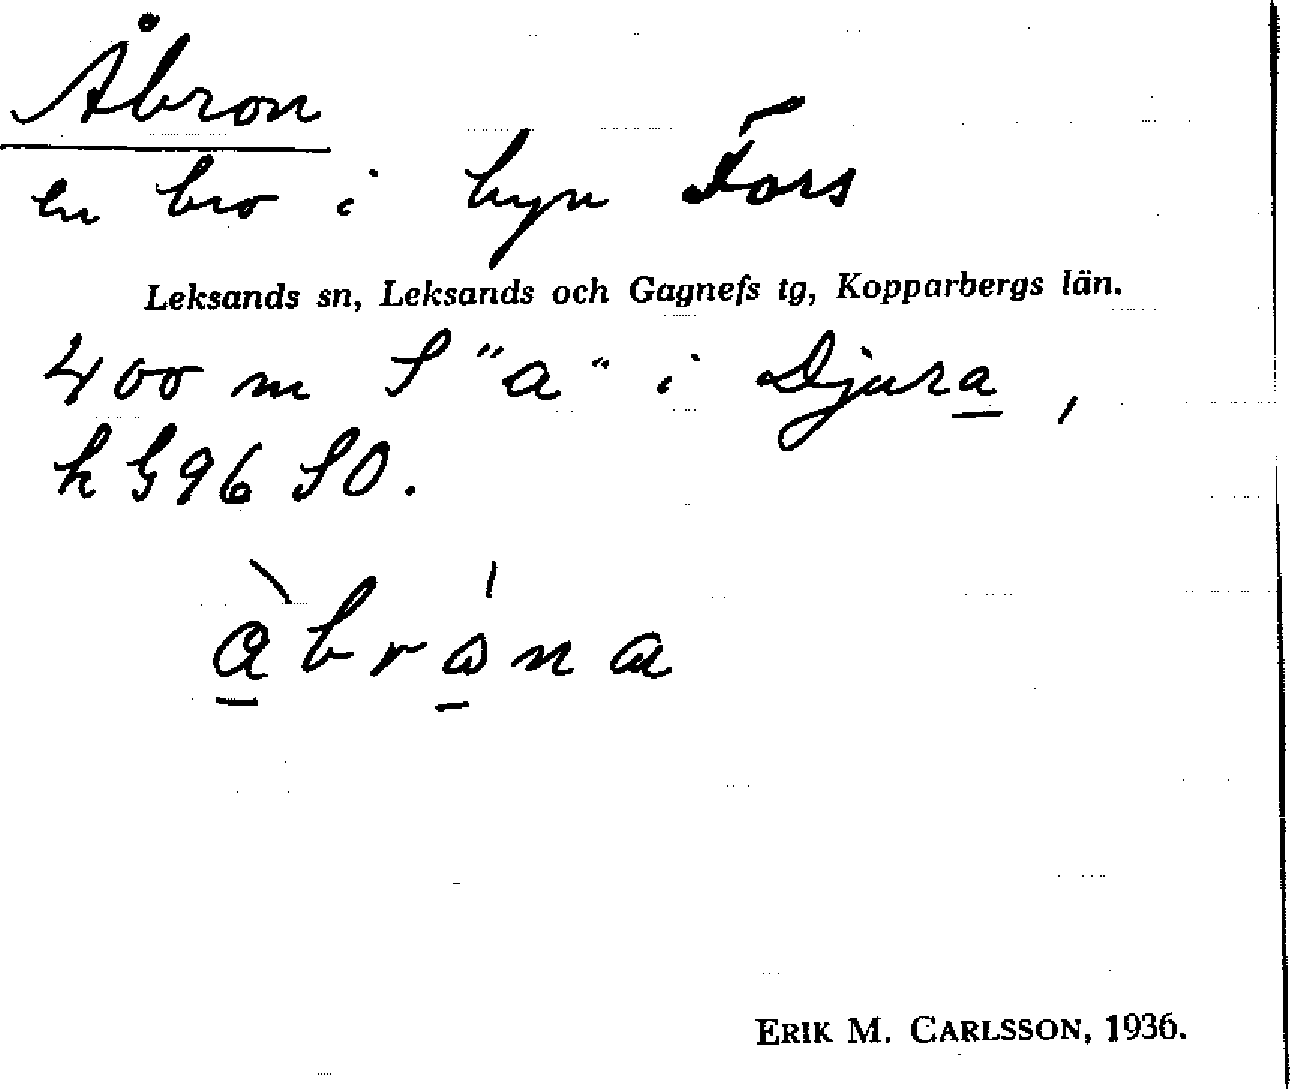 Åbron
en bro i byn Fors
Leksands sn, Leksands och Gagnefs tg, Kopparbergs län.
400 m S "a" i Djura,
h G96 SO.
åbrona
ERIK M. CARLSSON, 1936.